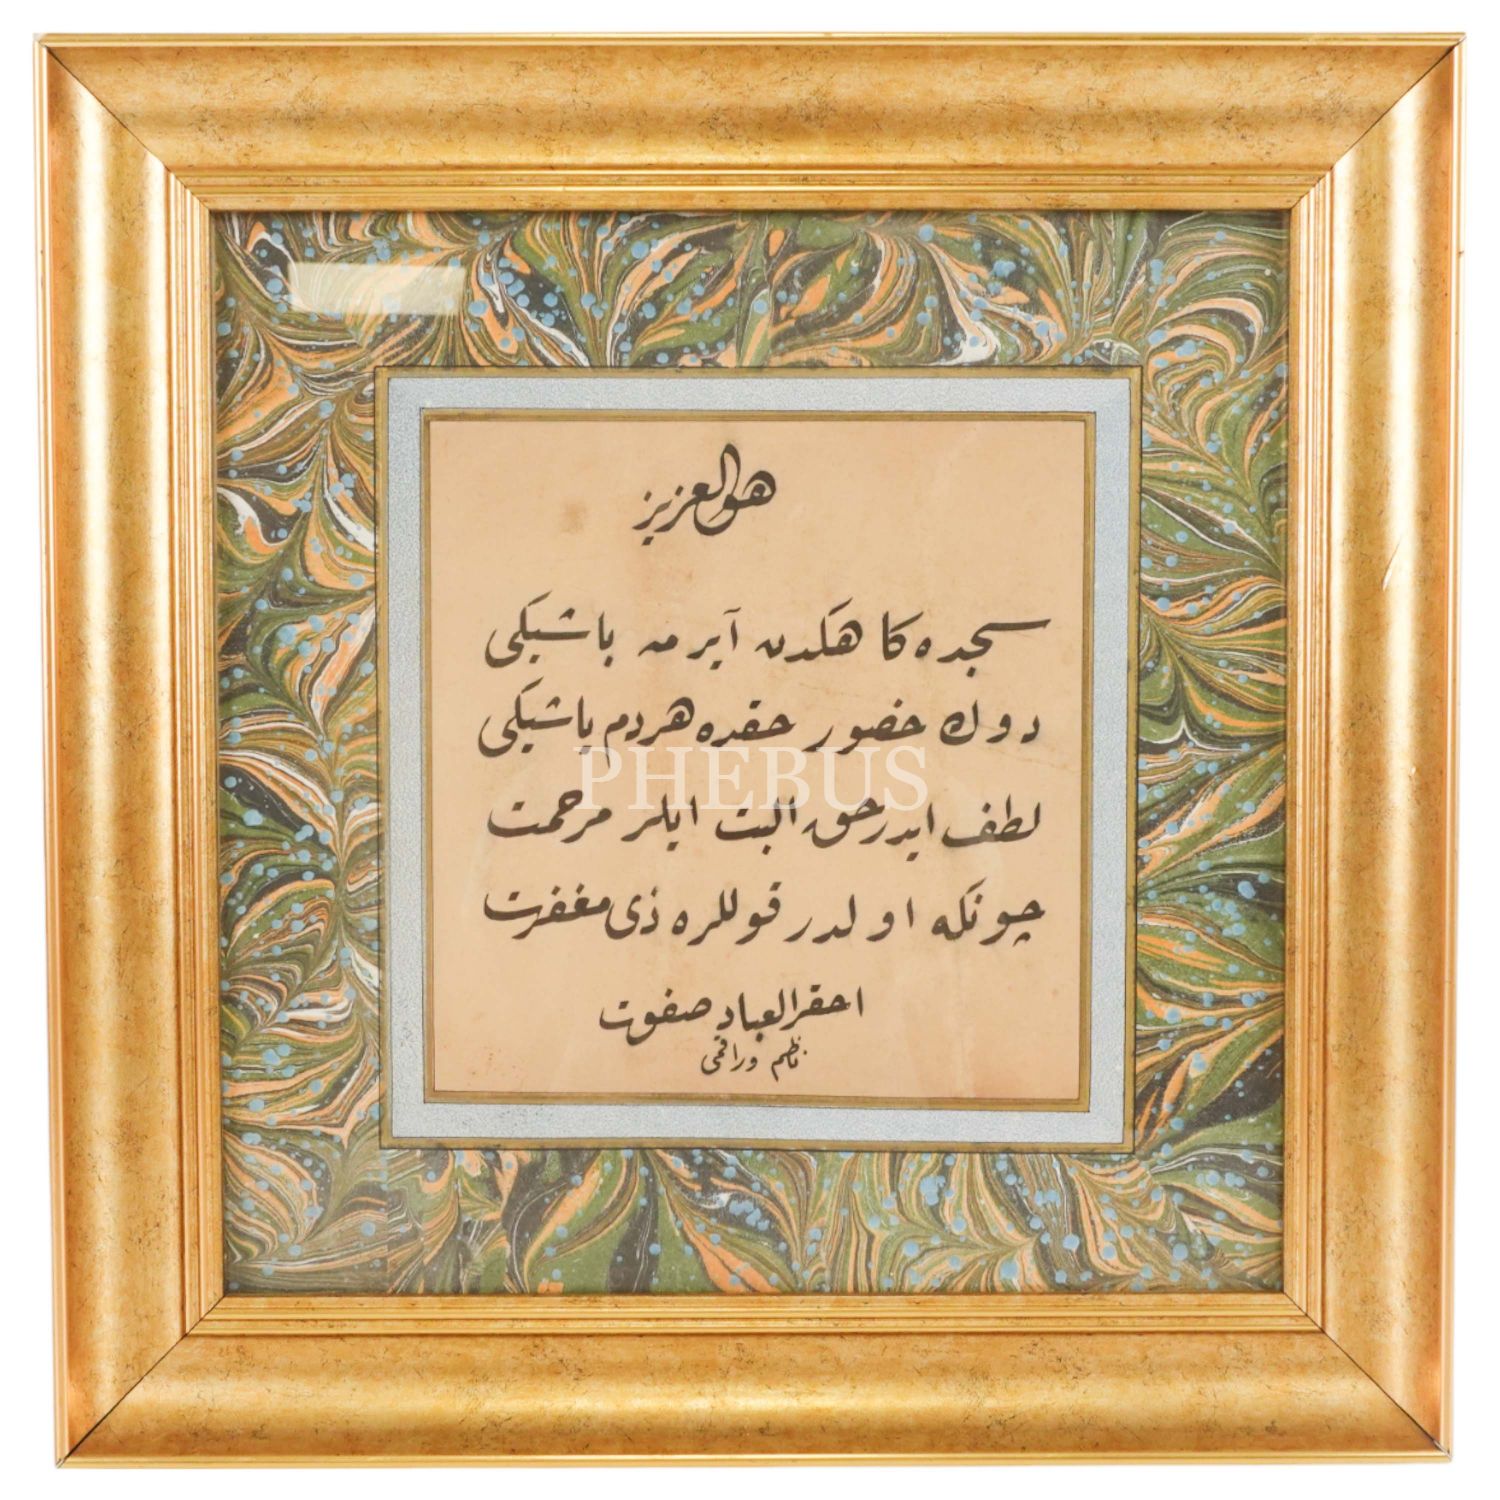 هوالعزيز
سجده كاهكدن آيرمه باشيكى
دون حضور حقده هردم ياشيكى
لطف ايدر حق البت ايلر مرحمت
چونكه اولدر قوللره ذى مغفرت
احقرالعباد صفوت
ناظم وراقمى
PHEBUS